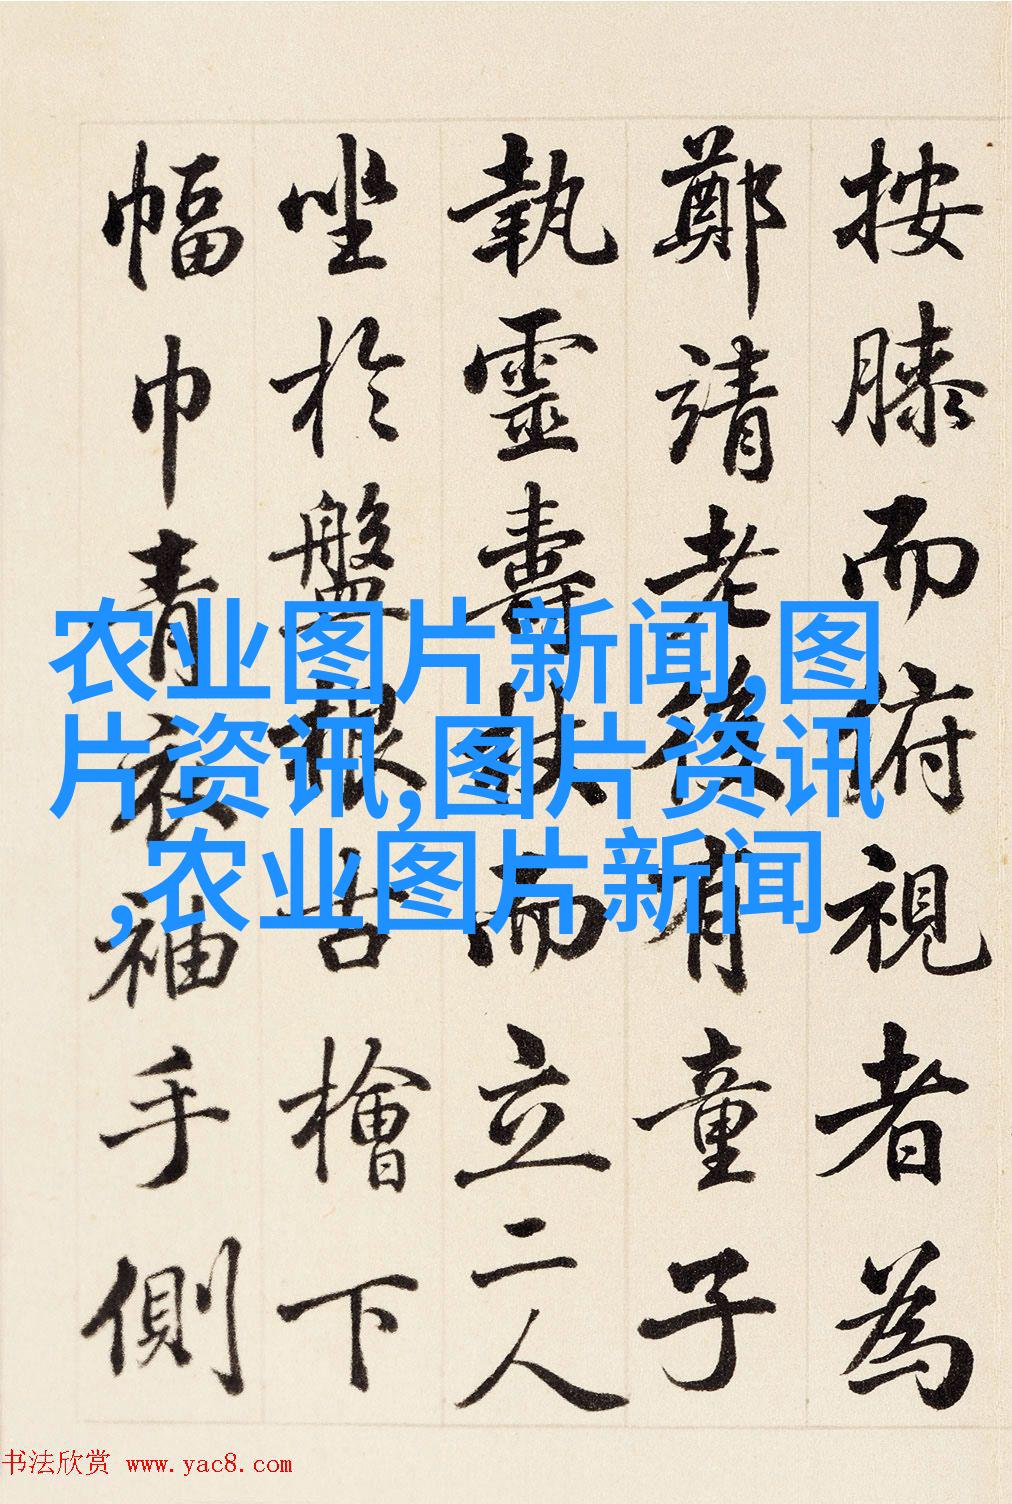 按膝而俯視者為
鄭靖老後有童子
執靈壽杖而立二人
坐於盤根古檜下
幅巾青衣袖手側
农业图片新闻,图
片资讯,图片资讯
,农业图片新闻
书法欣赏 www.yac8.com